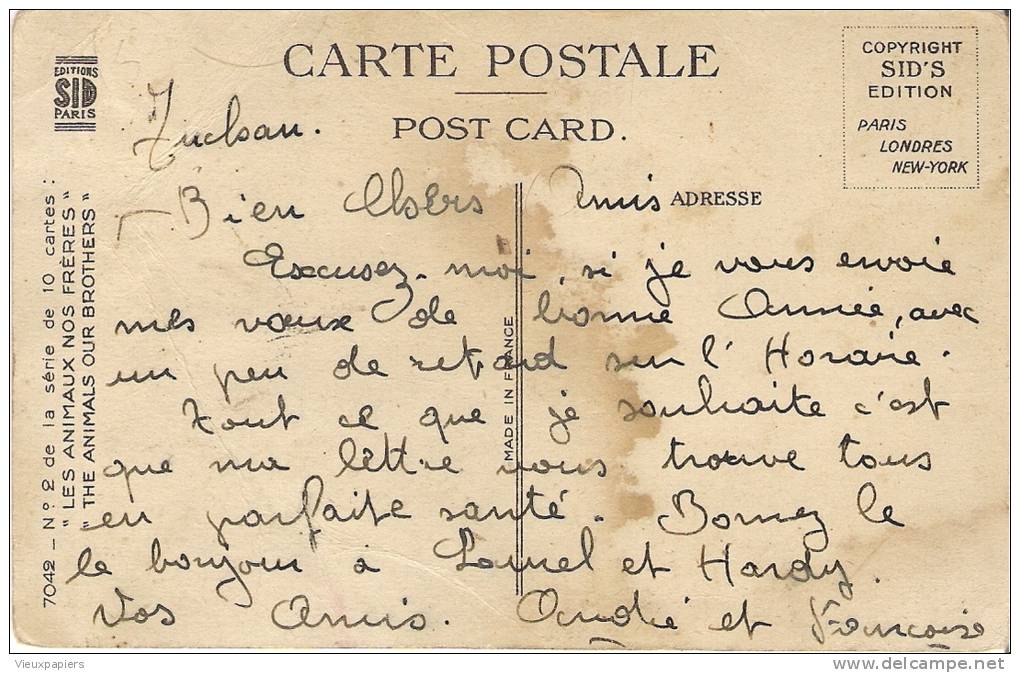 CARTE POSTALE
POST CARD.
EDITIONS
SID
PARIS
COPYRIGHT
SID'S
EDITION
PARIS
LONDRES
NEW-YORK
ADRESSE
7042 - No 2 de la série de 10 cartes :
" LES ANIMAUX NOS FRÈRES "
" THE ANIMALS OUR BROTHERS "
MADE IN FRANCE
Bien Chers Amis
Excusez-moi, si je vous envoie
mes vœux de bonne Année, avec
un peu de retard sur l'Horaire.
Tout ce que je souhaite c'est
que ma lettre vous trouve tous
en parfaite santé. Donnez le
le bonjour à Laurel et Hardy.
Vos Amis. André et Françoise
Vieuxpapiers
delcampe.net